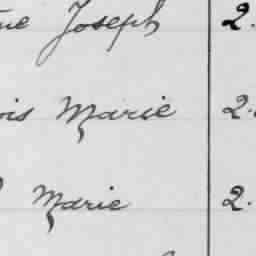 ue Joseph 2.
ois Marie 2.
Marie 2.